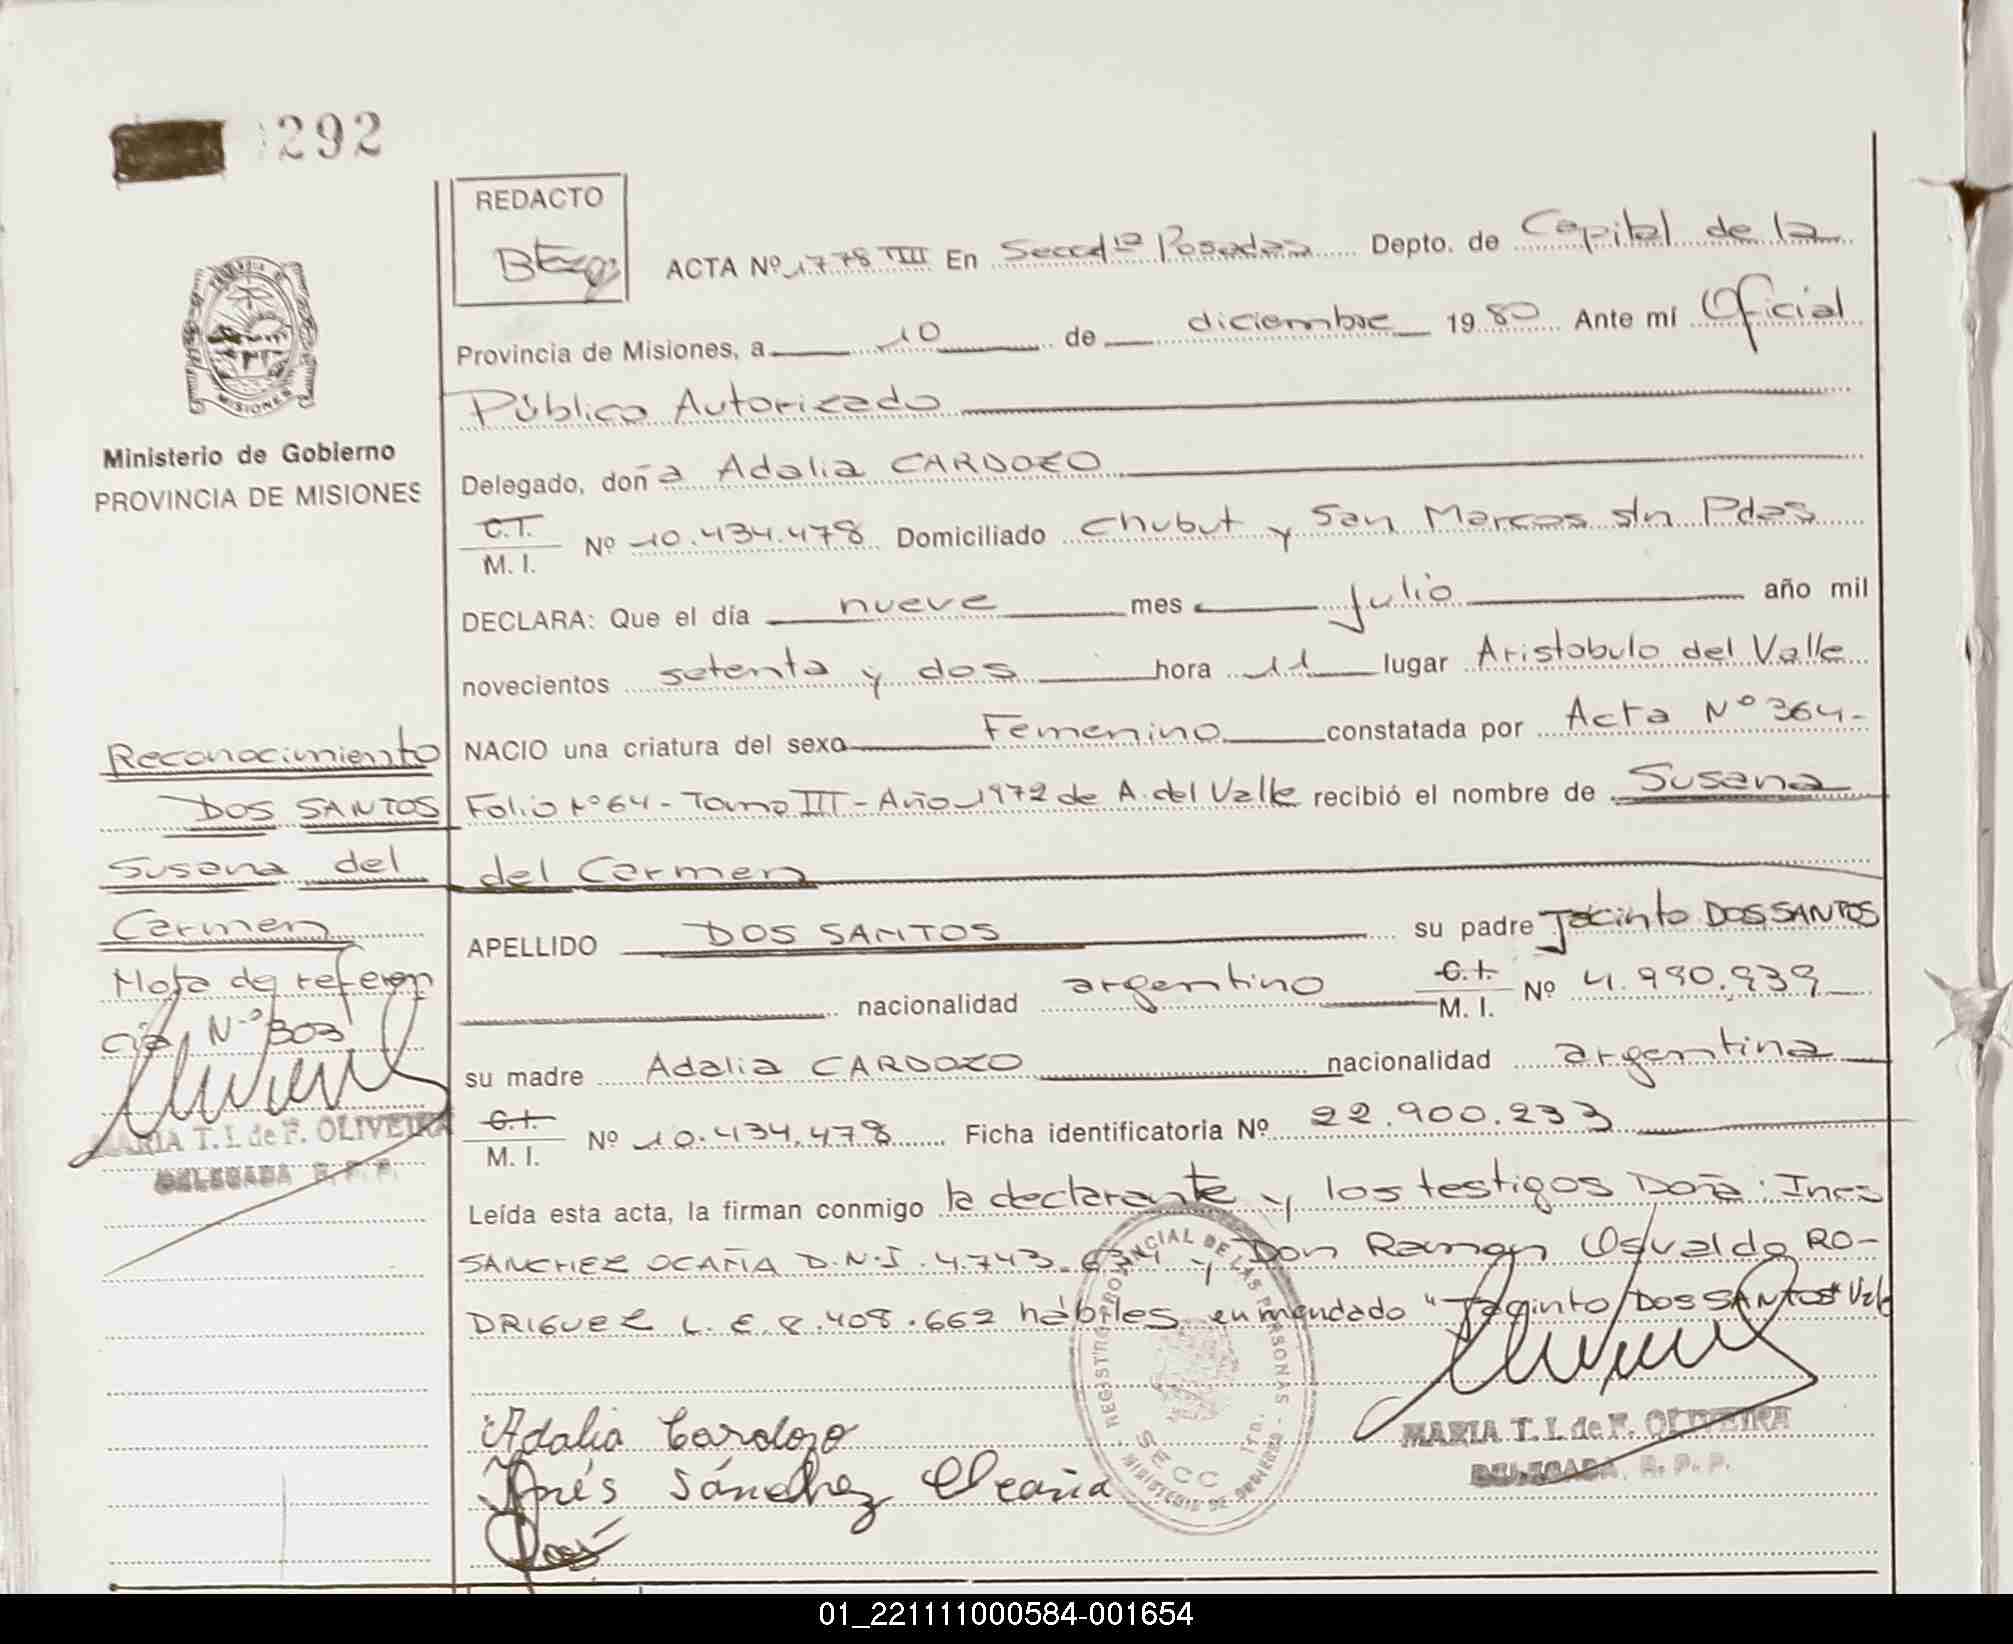 292
REDACTO
ACTA Nº 1778 TIII En Secc d 1a Posadas Depto. de Capital de la
Provincia de Misiones, a 10 de diciembre 1980 Ante mí Oficial
Público Autorizado
Ministerio de Gobierno
PROVINCIA DE MISIONES
Delegado, doña Adalia CARDOZO
C.I.
M. I. Nº 10.434.478 Domiciliado Chubut y San Marcos s/n Pdas
DECLARA: Que el día nueve mes Julio año mil
novecientos setenta y dos hora 11 lugar Aristobulo del Valle
NACIO una criatura del sexo Femenino constatada por Acta Nº 364-
Folio Nº 64 - Tomo III - Año 1972 de A. del Valle recibió el nombre de Susana
del Carmen
APELLIDO DOS SANTOS su padre Jacinto DOS SANTOS
nacionalidad argentino C.I. M. I. Nº 4.990.939
su madre Adalia CARDOZO nacionalidad argentina
C.I.
M. I. Nº 10.434.478 Ficha identificatoria Nº 22.900.233
Leída esta acta, la firman conmigo la declarante y los testigos Doña: Ines
SANCHEZ OCAÑA D.N.I. 4.743.634 y Don Ramon Osvaldo RO-
DRIGUEZ L.E. 8.408.662 hábiles, enmendado "Jacinto DOS SANTOS" Vale
Reconocimiento
DOS SANTOS
Susana del
Carmen
Nota de referen
cia Nº 303
MARIA T. I. de F. OLIVEIRA
DELEGADA R. P. P.
Adalia Cardozo
Inés Sánchez Ocaña
REGISTRO PROVINCIAL DE LAS PERSONAS
SECC 1ra.
MINISTERIO DE GOBIERNO
MARIA T. I. de F. OLIVEIRA
DELEGADA R. P. P.
MISIONES
01_221111000584-001654